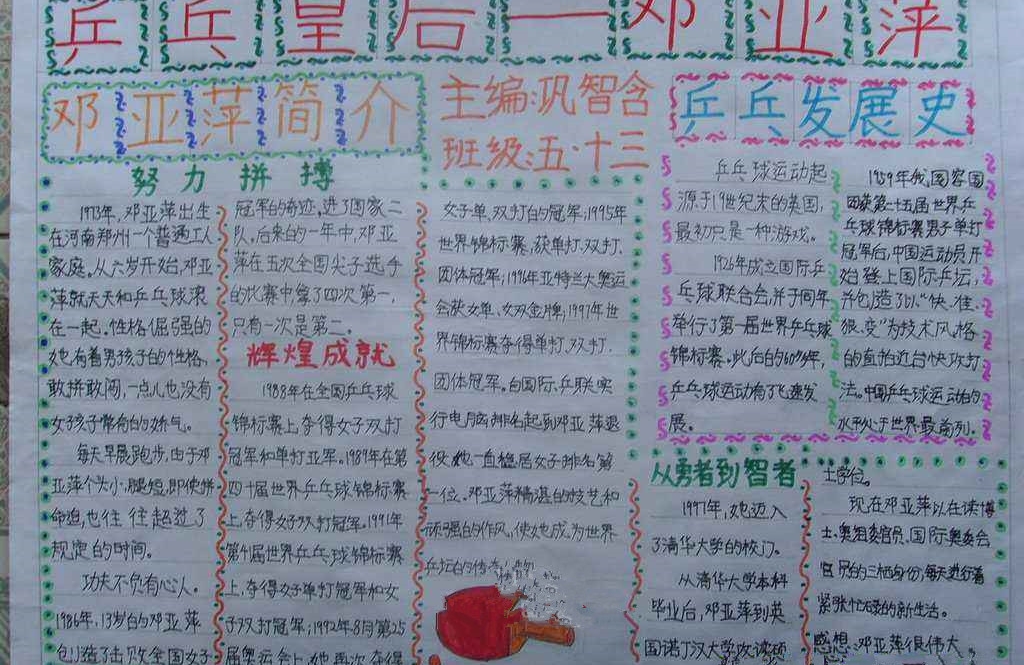 乒乓皇后—邓亚萍
邓亚萍简介
努力拼搏
1973年,邓亚萍出生
在河南郑州一个普通工人
家庭。从六岁开始,邓亚
萍就天天和乒乓球滚
在一起。性格倔强的
她,有着男孩子的性格,
敢拼敢闯,一点儿也没有
女孩子常有的娇气。
每天早晨跑步,由于邓
亚萍个头小,腿短,即使拼
命追,也往往超过了
规定的时间。
功夫不负有心人。
1986年,13岁的邓亚萍
创造了击败全国女子
冠军的奇迹,进了国家二
队,后来的一年中,邓亚
萍在五次全国尖子选手
的比赛中拿了四次第一,
只有一次是第二。
辉煌成就
1988年在全国乒乓球
锦标赛上,夺得女子双打
冠军和单打亚军。1989年在第
四十届世界乒乓球锦标赛
上,夺得女子双打冠军。1991年
第41届世界乒乓球锦标赛
上,夺得女子单打冠军和女
子双打冠军;1992年8月第25
届奥运会上,她再次夺得
主编:巩智含
班级:五·十三
女子单、双打的冠军;1995年
世界锦标赛,获单打、双打、
团体冠军;1996年亚特兰大奥运
会获女单、女双金牌;1997年世
界锦标赛夺得单打、双打、
团体冠军。自国际乒联实
行电脑排名起到邓亚萍退
役,她一直稳居女子排名第
一位。邓亚萍精湛的技艺和
顽强的作风,使她成为世界
乒坛的传奇人物
乒乓发展史
乒乓球运动起
源于19世纪末的英国,
最初只是一种游戏。
1926年成立国际乒
乓球联合会,并于同年
举行了第一届世界乒乓球
锦标赛。此后的60多年,
乒乓球运动有了飞速发
展。
1959年我国容国
团获第二十五届世界乒
乓球锦标赛男子单打
冠军后,中国运动员开
始登上国际乒坛,
并创造了以"快、准、
狠、变"为技术风格
的直拍近台快攻打
法。中国乒乓球运动的
水平处于世界最前列.
从勇者到智者
1997年,她迈入
了清华大学的校门。
从清华大学本科
毕业后,邓亚萍到英
国诺丁汉大学攻读硕
士学位。
现在邓亚萍以在读博
士、奥组委官员、国际奥委会
官员的三栖身份,每天进行着
紧张忙碌的新生活。
感想:邓亚萍很伟大,